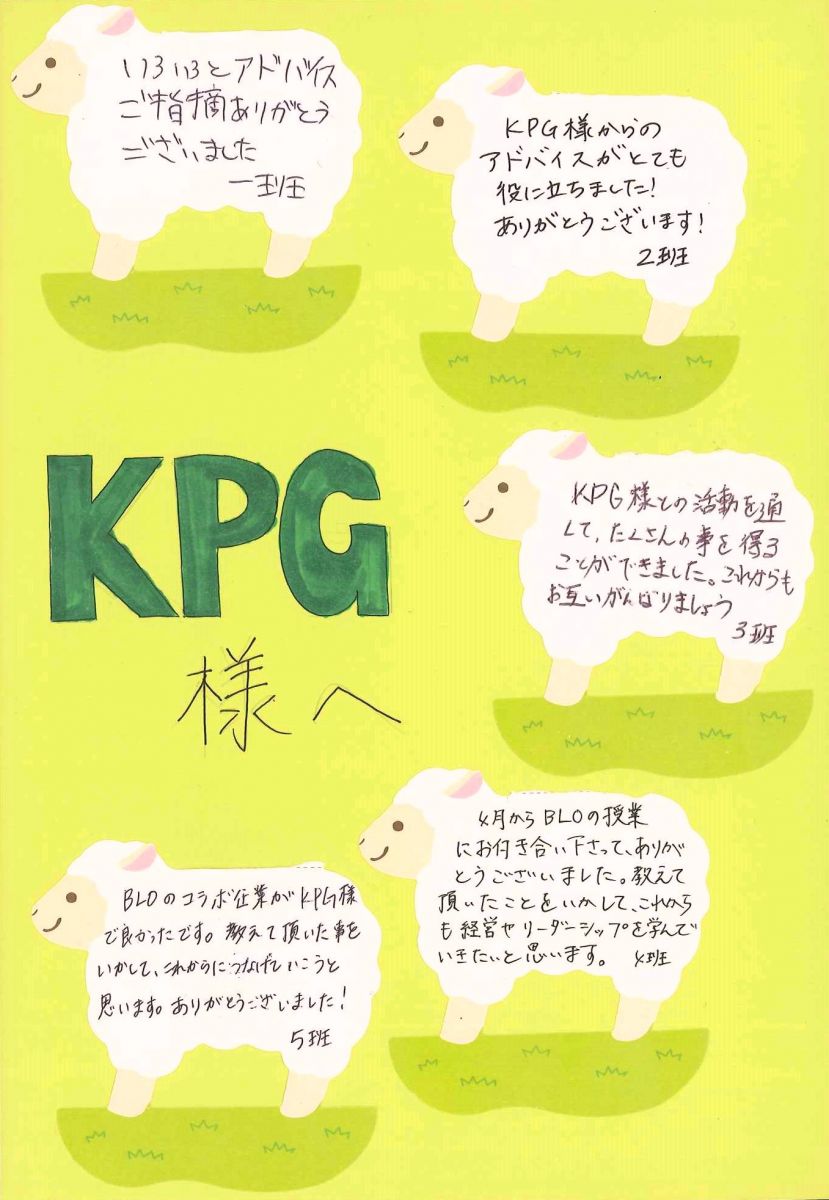 いろいろとアドバイス
ご指摘ありがとう
ございました
一班
KPG様からの
アドバイスがとても
役に立ちました!
ありがとうございます!
2班
KPG
様へ
KPG様との活動を通
して、たくさんの事を得る
ことができました。これからも
お互いがんばりましょう
3班
4月からBLOの授業
にお付き合い下さって、ありが
とうございました。教えて
頂いたことをいかして、これから
も経営やリーダーシップを学んで
いきたいと思います。 4班
BLOのコラボ企業がKPG様
で良かったです。教えて頂いた事を
いかして、これからにつなげていこうと
思います。ありがとうございました!
5班